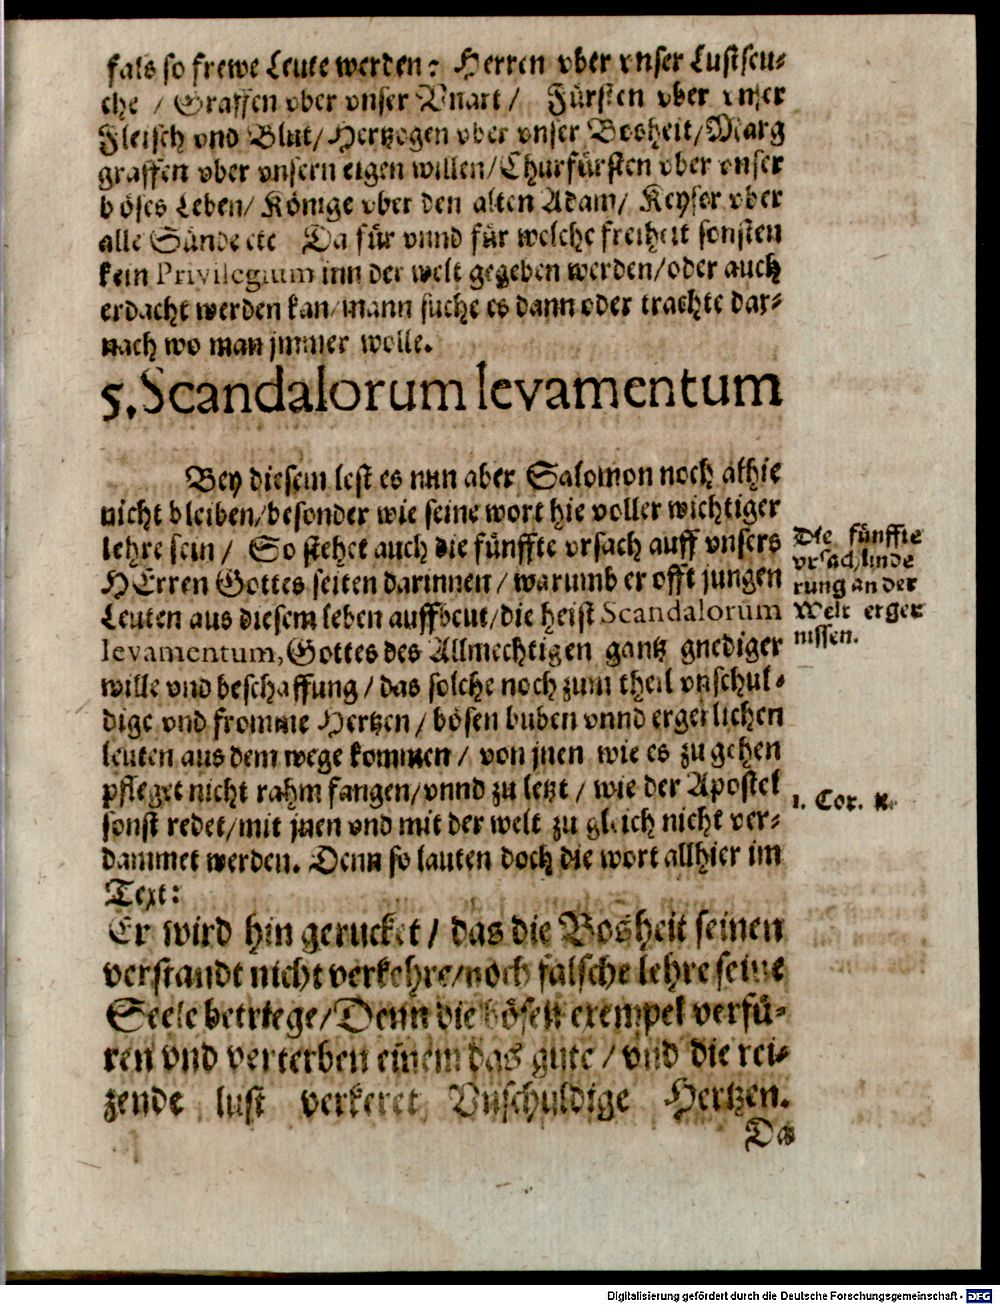 fals so frewe Leute werden: Herren vber vnser Lustseu-
che / Graffen vber vnser Vnart / Fürsten vber vnser
Fleisch vnd Blut/ Hertzogen vber vnser Bosheit/ Marg
graffen vber vnsern eigen willen/ Churfürsten vber vnser
böses Leben/ Könige vber den alten Adam/ Keyser vber
alle Sünde etc Da für vnnd für welche freiheit sonsten
kein Privilegium inn der welt gegeben werden/ oder auch
erdacht werden kan/ mann suche es dann oder trachte dar-
nach wo man jmmer wolle.
5. Scandalorum levamentum
Bey diesem lest es nun aber Salomon noch alhie
nicht bleiben/ besonder wie seine wort hie voller wichtiger
lehre sein / So stehet auch die fünffte vrsach auff vnsers
HErren Gottes seiten darinnen / warumb er offt jungen
Leuten aus diesem leben auffbeut/ die heist Scandalorum
levamentum, Gottes des Allmechtigen gantz gnediger
wille vnd beschaffung / das solche noch zum theil vnschul-
dige vnd fromme Hertzen / bösen buben vnnd ergerlichen
leuten aus dem wege kommen / von jnen wie es zu gehen
pfleget nicht rahm fangen/ vnnd zu letzt / wie der Apostel
sonst redet/ mit jnen vnd mit der welt zu gleich nicht ver-
dammet werden. Denn so lauten doch die wort allhier im
Text:
Er wird hin gerucket / das die Bosheit seinen
verstandt nicht verkehre/ noch falsche lehre seine
Seele betriege/ Denn die bösen exempel verfü-
ren vnd verterben einem das gute / vnd die rei-
zende lust verkeret Vnschuldige Hertzen.
Da
Die fünffte
vrsach linde
rung an der
Welt erger
nissen.
1. Cor. x.
Digitalisierung gefördert durch die Deutsche Forschungsgemeinschaft - DFG